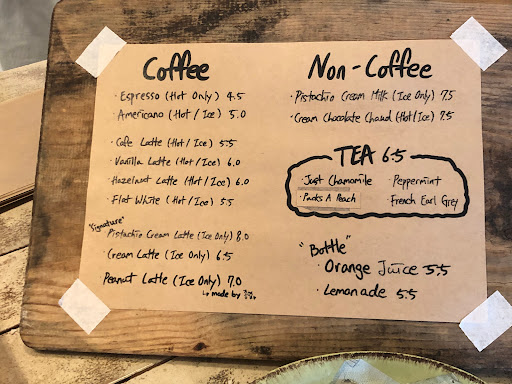 Coffee
· Espresso (Hot Only) 4.5
· Americano (Hot / Ice) 5.0
· Cafe Latte (Hot / Ice) 5.5
· Vanilla Latte (Hot / Ice) 6.0
· Hazelnut Latte (Hot / Ice) 6.0
· Flat White (Hot / Ice) 5.5
"Signature"
Pistachio Cream Latte (Ice Only) 8.0
· Cream Latte (Ice Only) 6.5
Peanut Latte (Ice Only) 7.0
↳ made by
Non-Coffee
· Pistachio Cream Milk (Ice Only) 7.5
· Cream Chocolate Chaud (Hot/Ice) 7.5
TEA 6.5
· Just Chamomile
· Peppermint
· Packs A Peach
· French Earl Grey
"Bottle"
· Orange Juice 5.5
· Lemonade 5.5